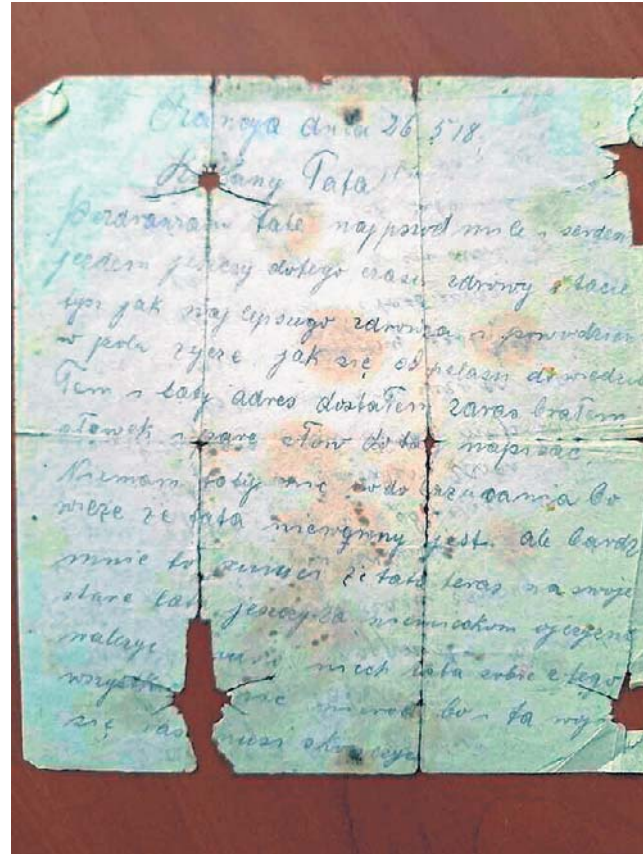 Francya dnia 26 5 18
Kochany Tata
Pozdrawiam tate najpsiod mile i serdem
jezdem jeszczy dotego czasu zdrowy i tacie
tysz jak naj lepszego zdrowza i powodzien
w polu zycze jak się od pelasy dowiedzia
łem i taty adres dostałem zaras brałem
ołowek i pare słow do taty napisac
Niemam taty nic do zucania bo
wieze ze tata niewynny jest. ale bardz
mnie to smuci ze tata teras na swoje
stare lata jeszczy za niemieckom ojczyzne
walczyc musi niech tata sobie z tego
wszystk nic nierob bo i ta wojn
się zas musi skonczyc